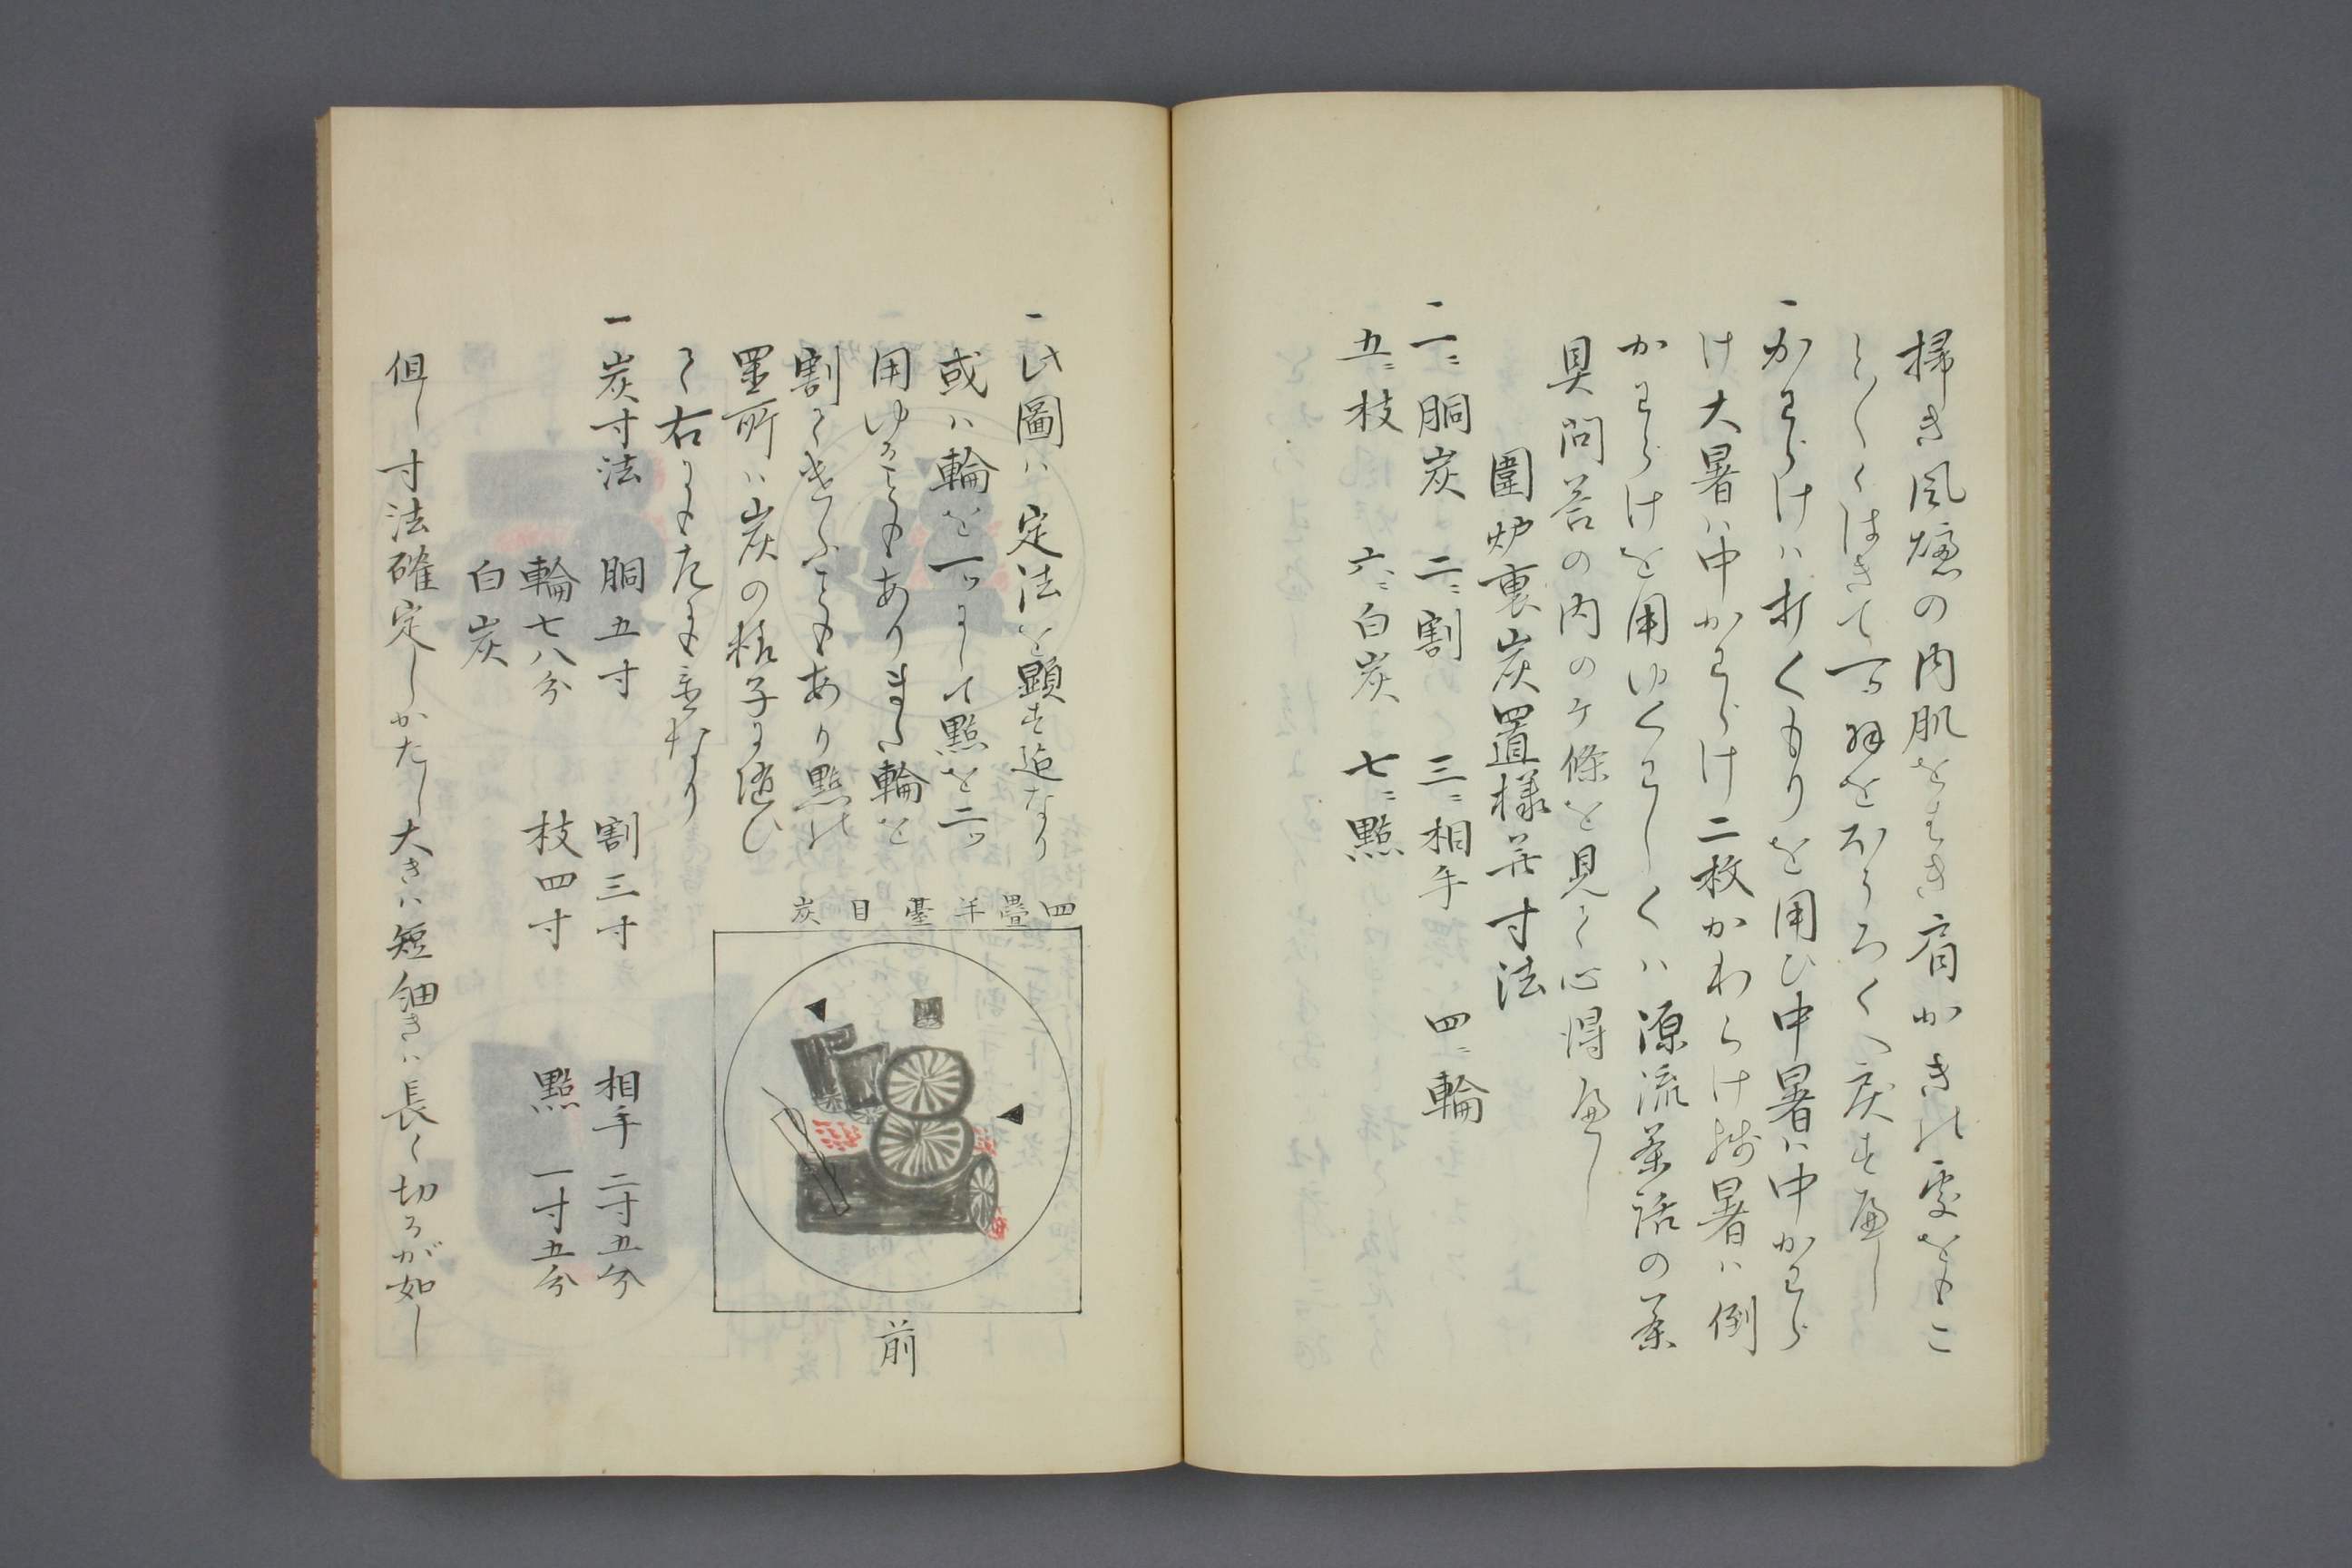 掃き風爐の内肌をはき肩かきの處をもこ
と〴〵くはきて一ツ羽をおうろくへ戻すべし
一かわらけハ打くもりを用ひ中暑ハ中かわら
け大暑ハ中かわらけ二枚かわらけ残暑ハ例
かわらけを用ゆくわしくハ源流茶話の茶
具問荅の内のケ條を見て心得べし
圍炉裏炭置様并寸法
一 一ニ胴炭 二ニ割 三ニ相手 四ニ輪
五ニ枝 六ニ白炭 七ニ點
一此圖ハ定法を顕す迄なり
或ハ輪を一ツにして點を二ツ
用ゆることもありまた輪を
割てつかふこともあり點の
置所ハ炭の格子に随ひ
て右にも左にも置なり
四疊半臺目炭
前
一炭寸法 胴五寸 割三寸 相手二寸五分
輪七八分 枝四寸 點一寸五分
白炭
但し寸法確定しかたし大きハ短細きハ長く切るが如し